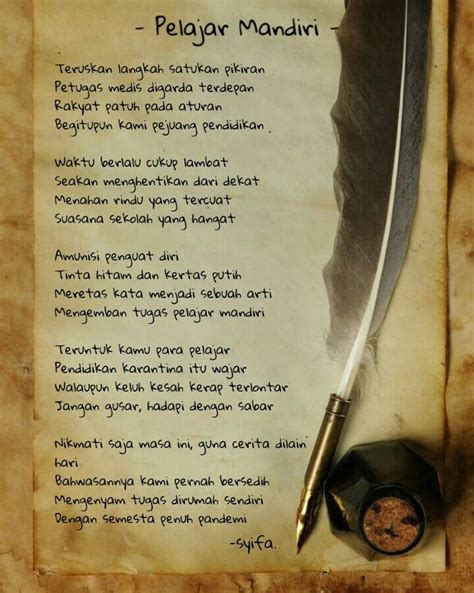 - Pelajar Mandiri -
Teruskan langkah satukan pikiran
Petugas medis digarda terdepan
Rakyat patuh pada aturan
Begitupun kami pejuang pendidikan
Waktu berlalu cukup lambat
Seakan menghentikan dari dekat
Menahan rindu yang tercuat
Suasana sekolah yang hangat
Amunisi penguat diri
Tinta hitam dan kertas putih
Meretas kata menjadi sebuah arti
Mengemban tugas pelajar mandiri
Teruntuk kamu para pelajar
Pendidikan karantina itu wajar
Walaupun keluh kesah kerap terlontar
Jangan gusar, hadapi dengan sabar
Nikmati saja masa ini, guna cerita dilain
hari.
Bahwasannya kami pernah bersedih
Mengenyam tugas dirumah sendiri
Dengan semesta penuh pandemi
-syifa.